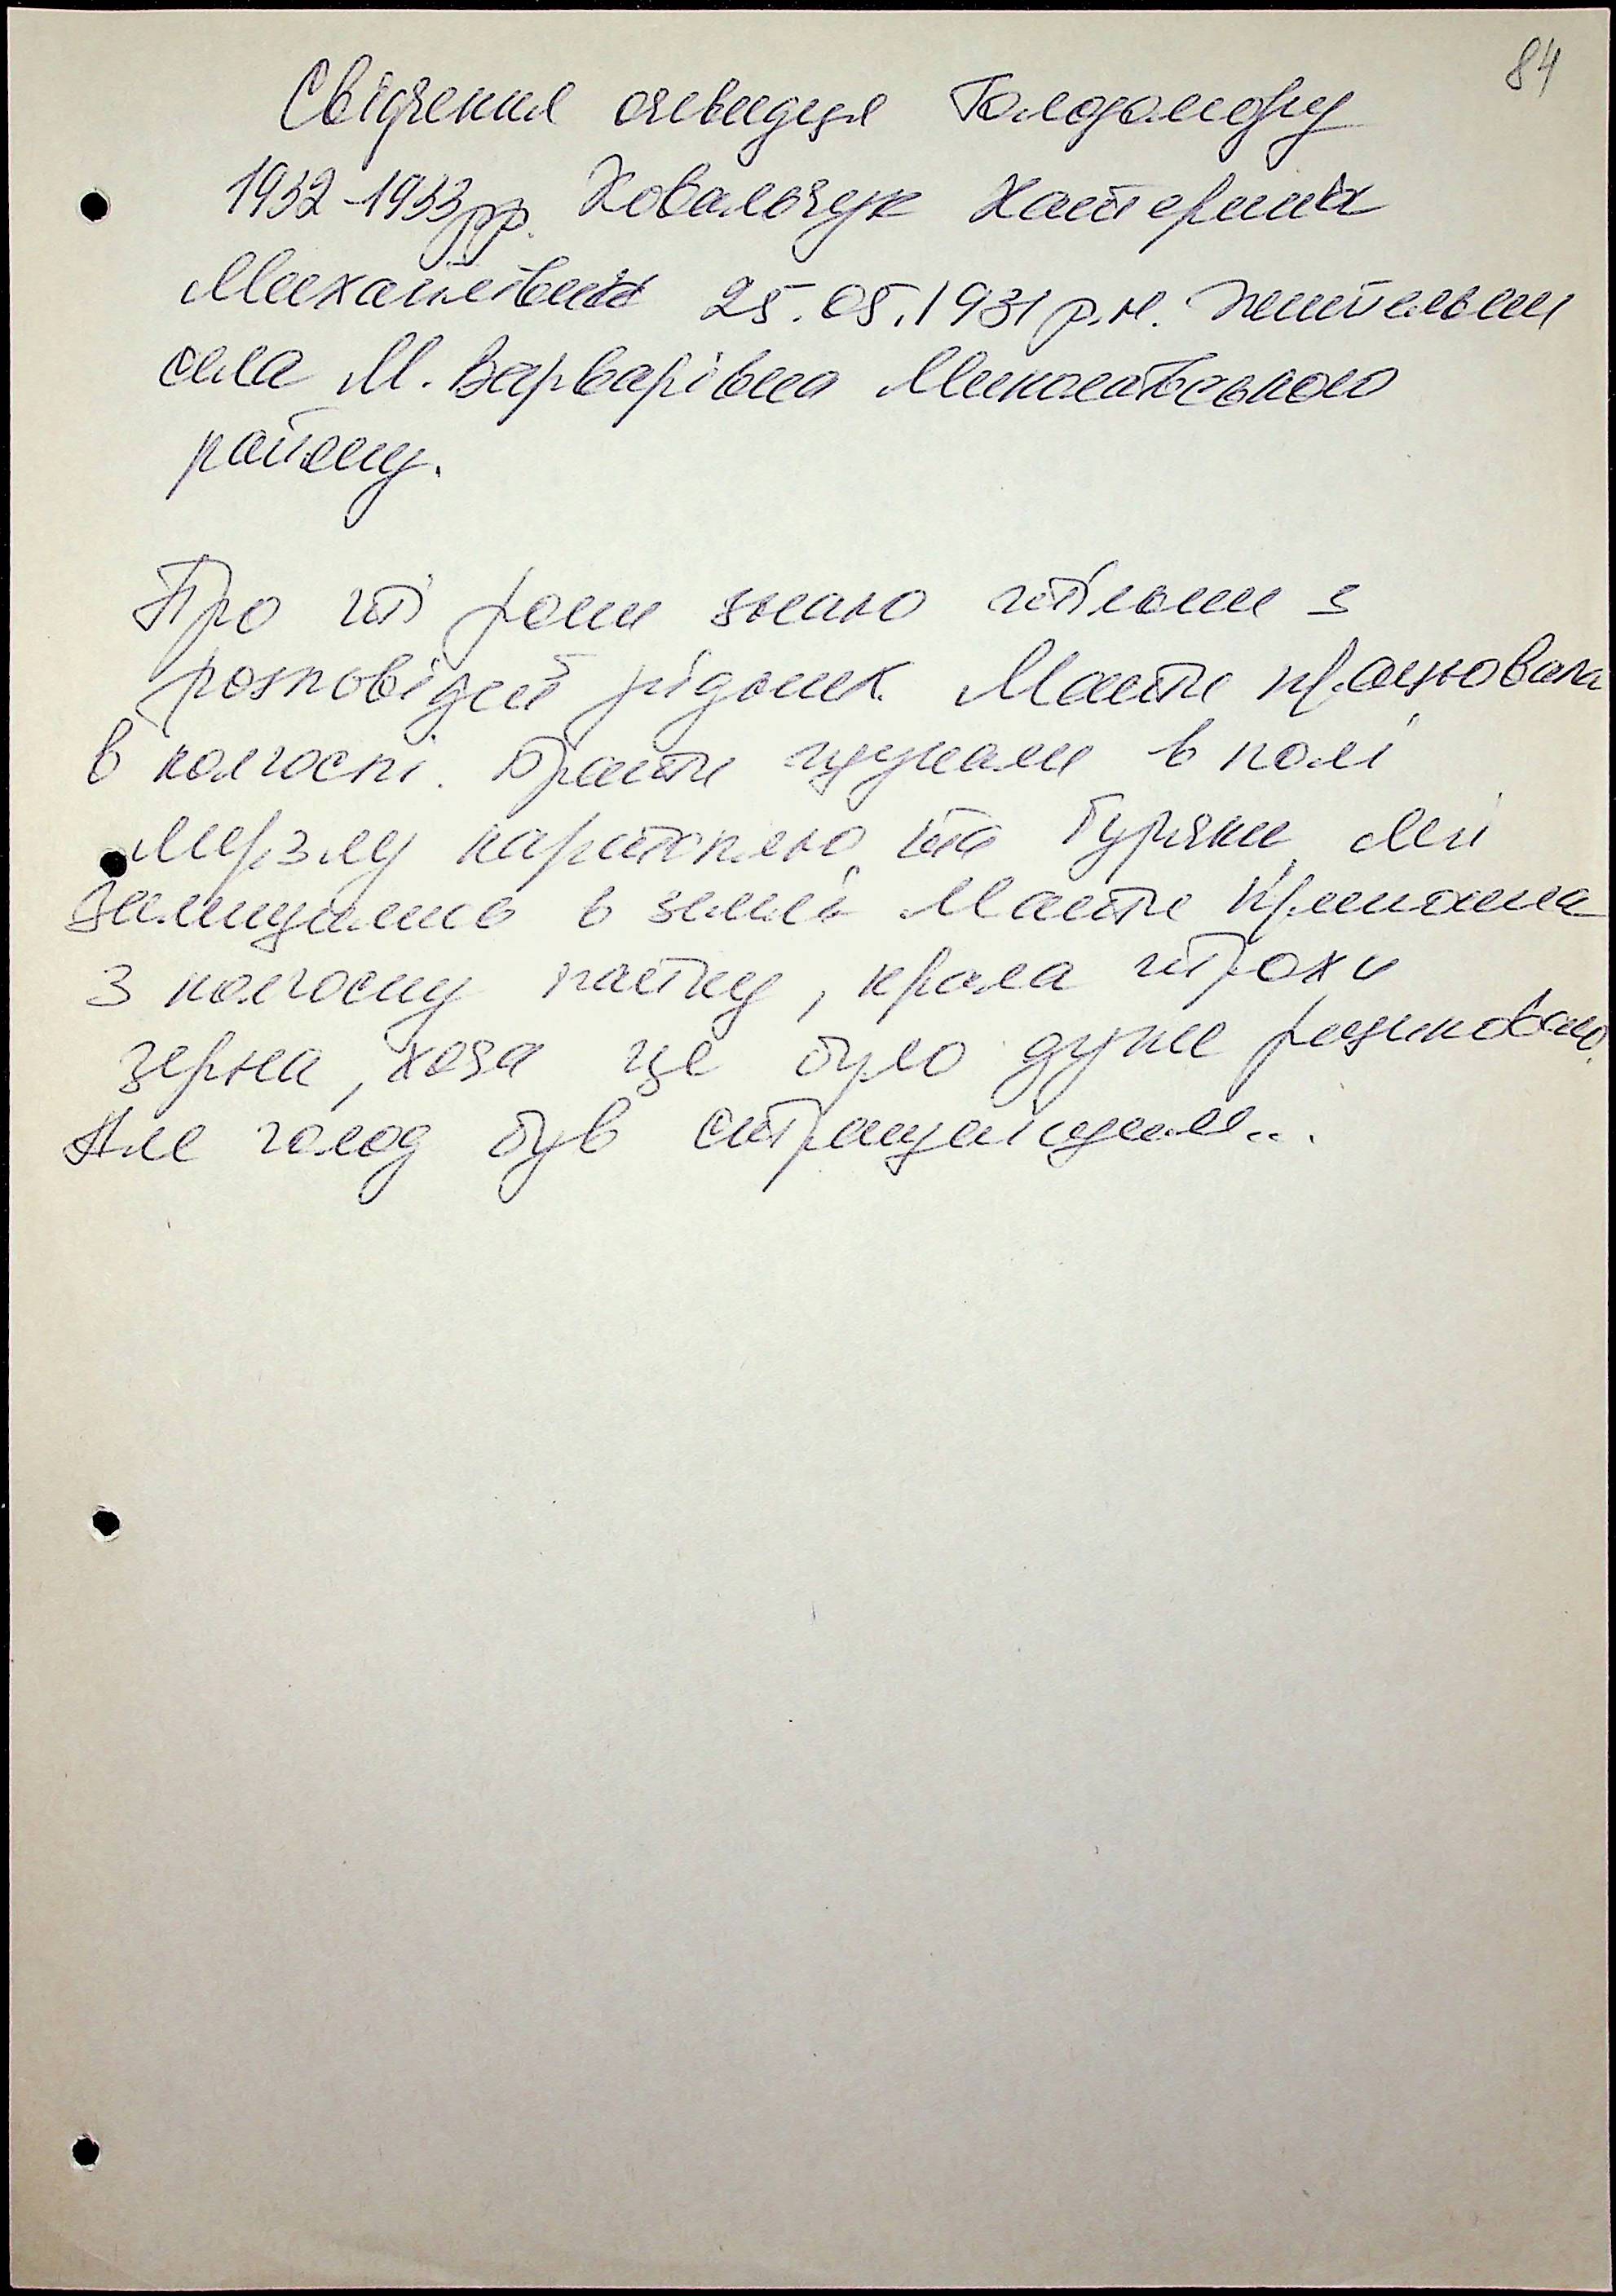 84
Свідчення очевидця Голодомору
1932-1933рр. Ковальчук Катерина
Михайлівна 25.05.1931 р.н. жительки
села М. Варварівка Миколаївського
району.
Про ті роки знаю тільки з
розповідей рідних. Мати працювала
в колгоспі. Брати шукали в полі
мерзлу картоплю та буряки, які
залишились в землі. Мати приносила
з колгоспу пайку, крала трохи
зерна, хоча це було дуже ризиковано.
Але голод був страшнішим...